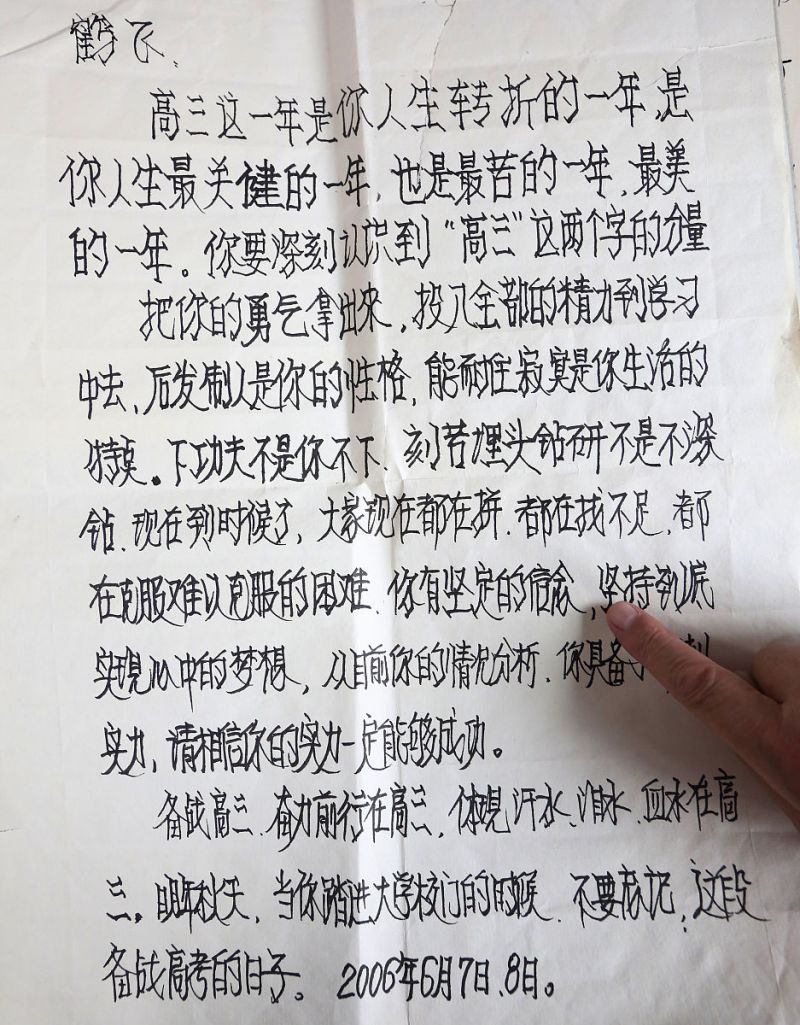 鹤飞、
高三这一年是你人生转折的一年,是
你人生最关健的一年,也是最苦的一年,最美
的一年。你要深刻认识到“高三”这两个字的分量
把你的勇气拿出来,投入全部的精力到学习
中去、后发制人是你的性格,能耐住寂寞是你生活的
特点。下功夫不是你不下、刻苦埋头钻研不是不深
钻、现在到时候了,大家现在都在拼、都在找不足、都
在克服难以克服的困难、你有坚定的信念,坚持到底
实现心中的梦想,从目前你的情况分析、你具备
实力,请相信你的实力一定能够成功。
备战高三、奋力前行在高三,体现汗水、泪水、血水在高
三,明年秋天,当你踏进大学校门的时候、不要忘记,这段
备战高考的日子。2006年6月7日、8日。